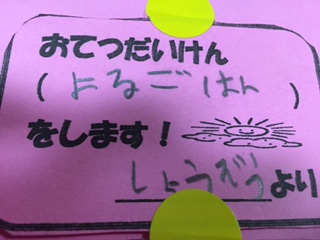 おてつだいけん
(よるごはん)
をします!
しょうぞうより